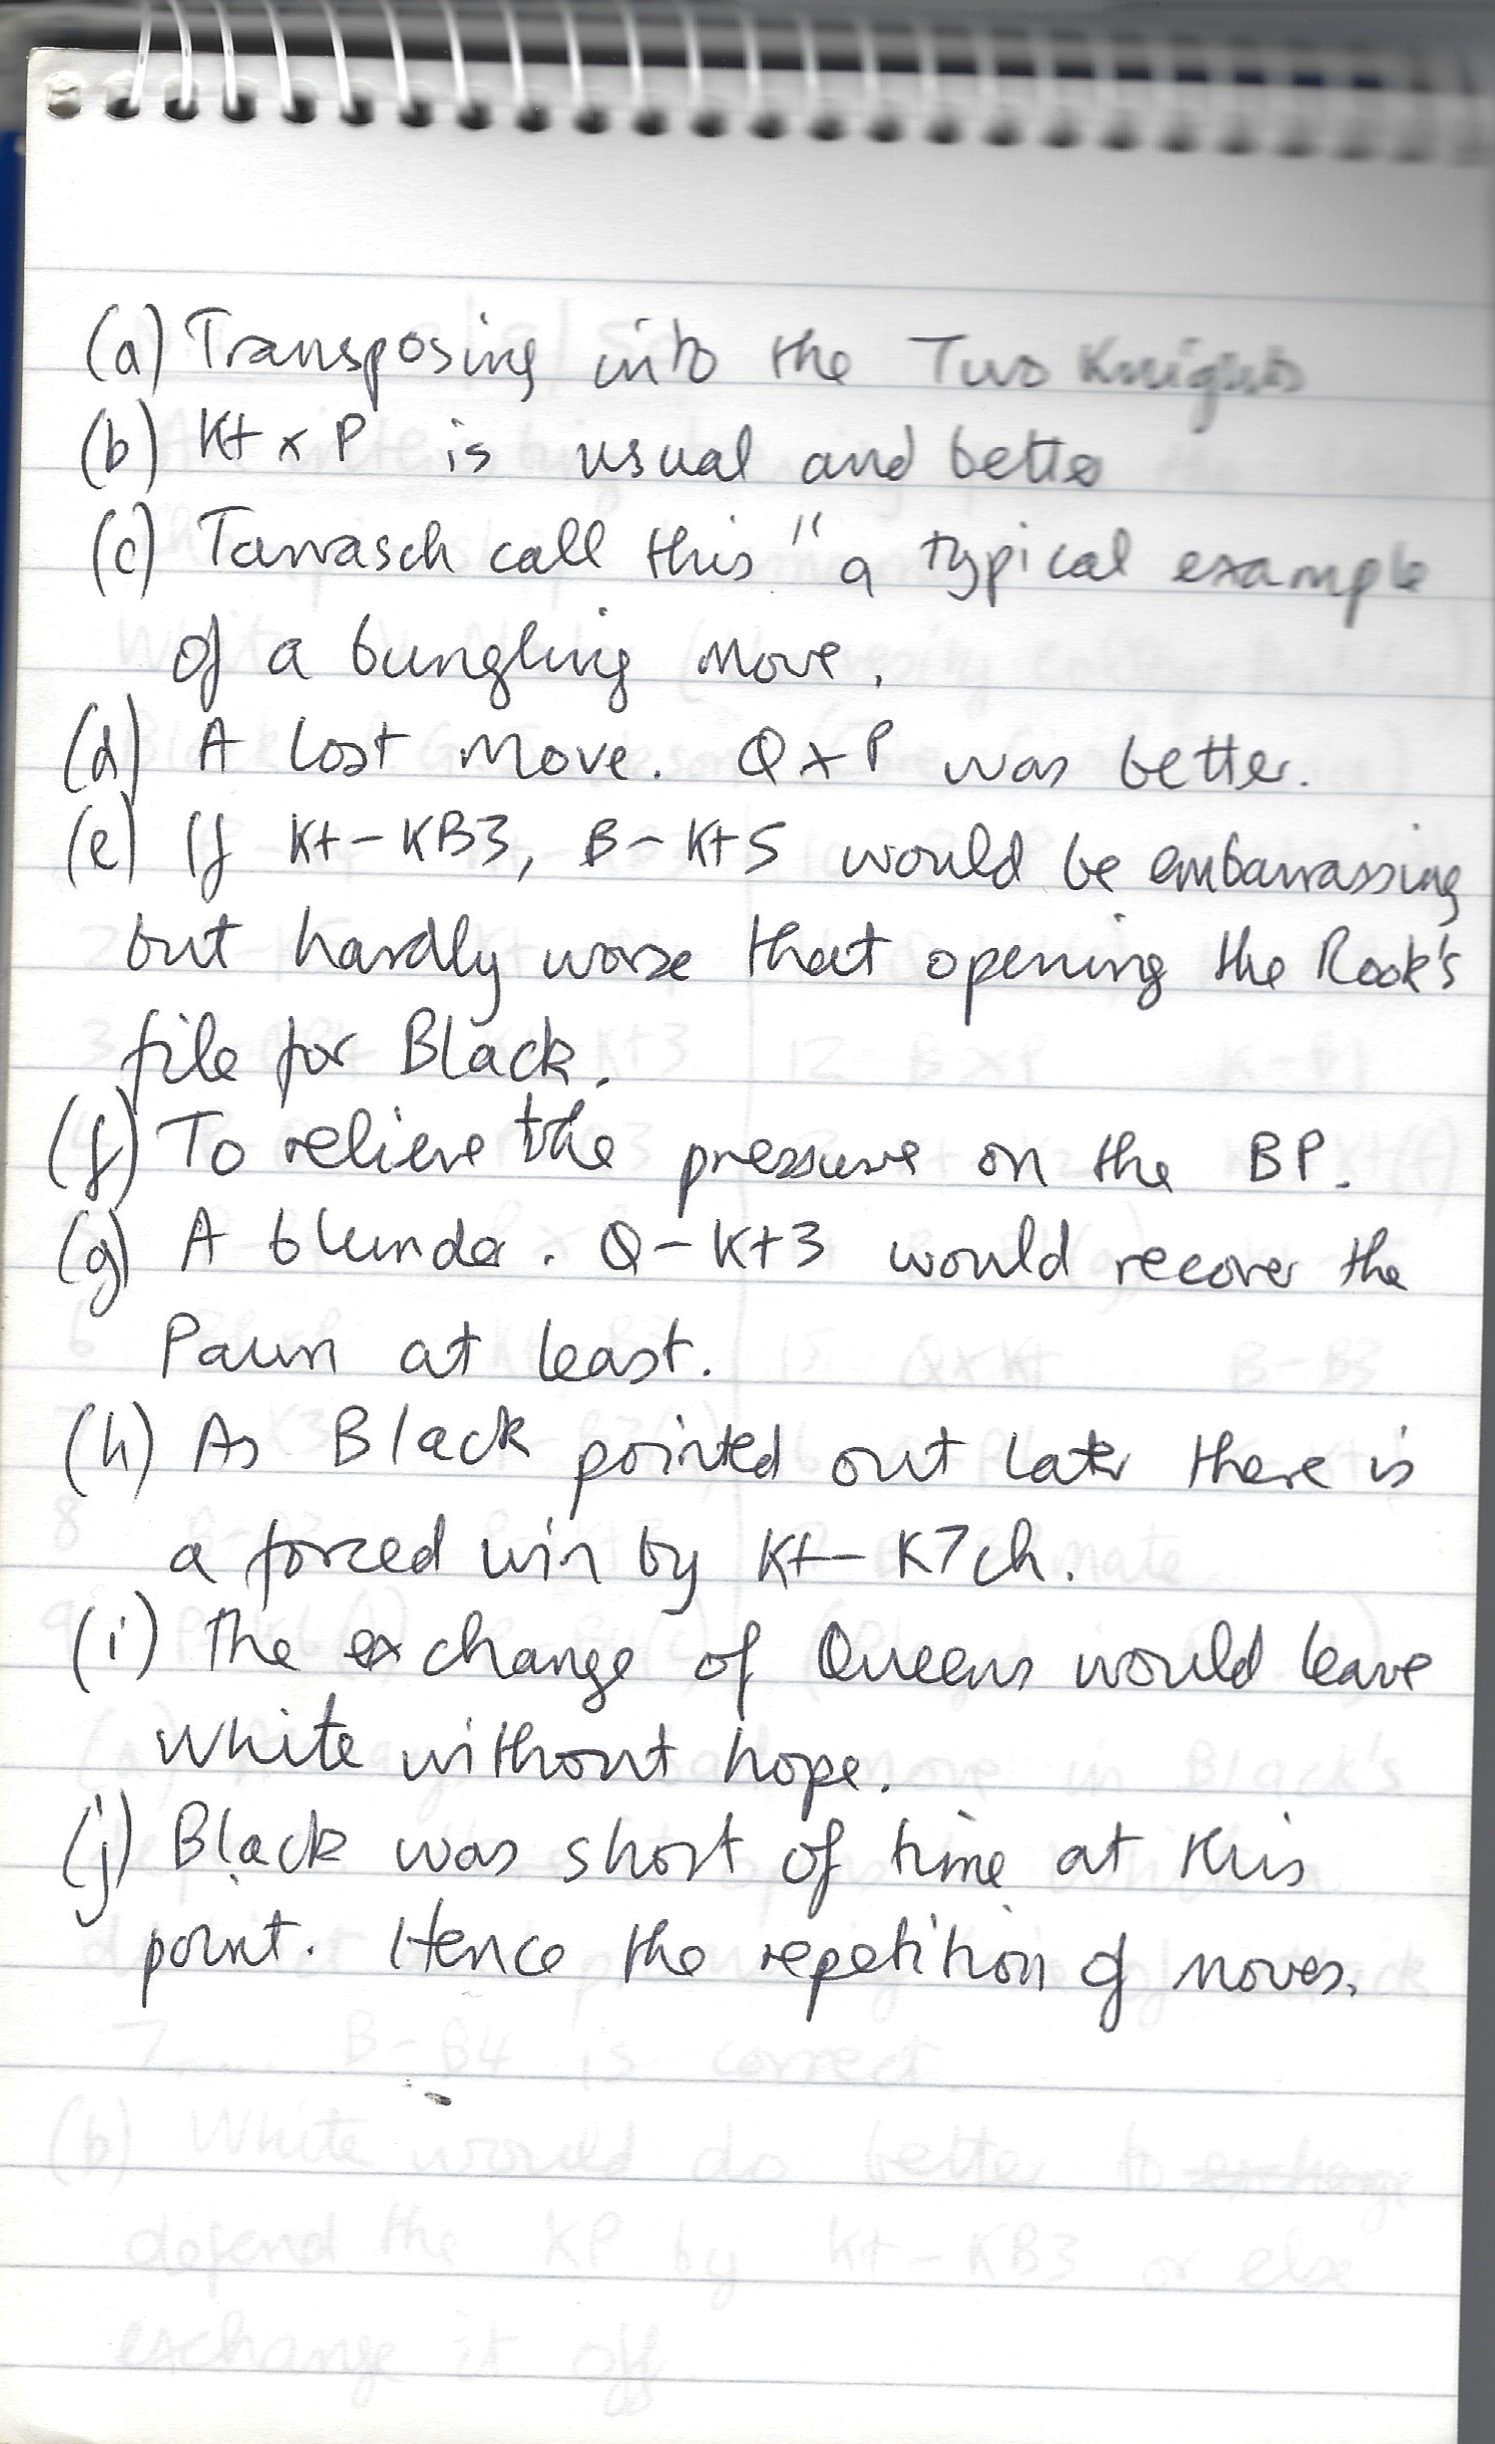 (a) Transposing into the Two Knights
(b) Kt x P is usual and better
(c) Tarrasch call this "a typical example
of a bungling move.
(d) A lost move. Q x P was better.
(e) If Kt-KB3, B-Kt5 would be embarrassing
but hardly worse that opening the Rook's
file for Black.
(f) To relieve the pressure on the BP.
(g) A blunder. Q-Kt3 would recover the
Pawn at least.
(h) As Black pointed out later there is
a forced win by Kt-K7ch.
(i) The exchange of Queens would leave
White without hope.
(j) Black was short of time at this
point. Hence the repetition of moves.
7.... B-B4 is correct
(b) White would do better to exchange
defend the KP by Kt-KB3 or else
exchange it off